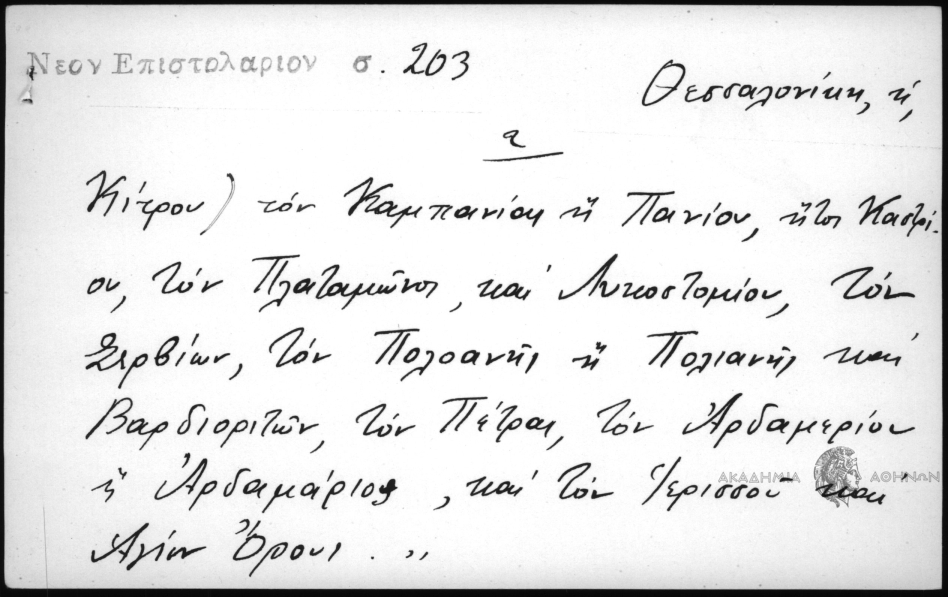 Νεον Επιστολαριον σ. 203
Θεσσαλονίκη, ἡ,
2
Κίτρου) τόν Καμπανίας ἤ Πανίου, ἤτοι Καστρί-
ου, τόν Πλαταμῶνος, καί Λυκοστομίου, τόν
Σερβίων, τόν Πολοανῆς ἤ Πολιανῆς καί
Βαρδιοριτῶν, τόν Πέτρας, τόν Ἀρδαμερίου
ἤ Ἀρδαμάριος, καί τόν Ἱερισσοῦ και
ΑΚΑΔΗΜΙΑ ΑΘΗΝΩΝ
Ἁγίου Ὄρους . "